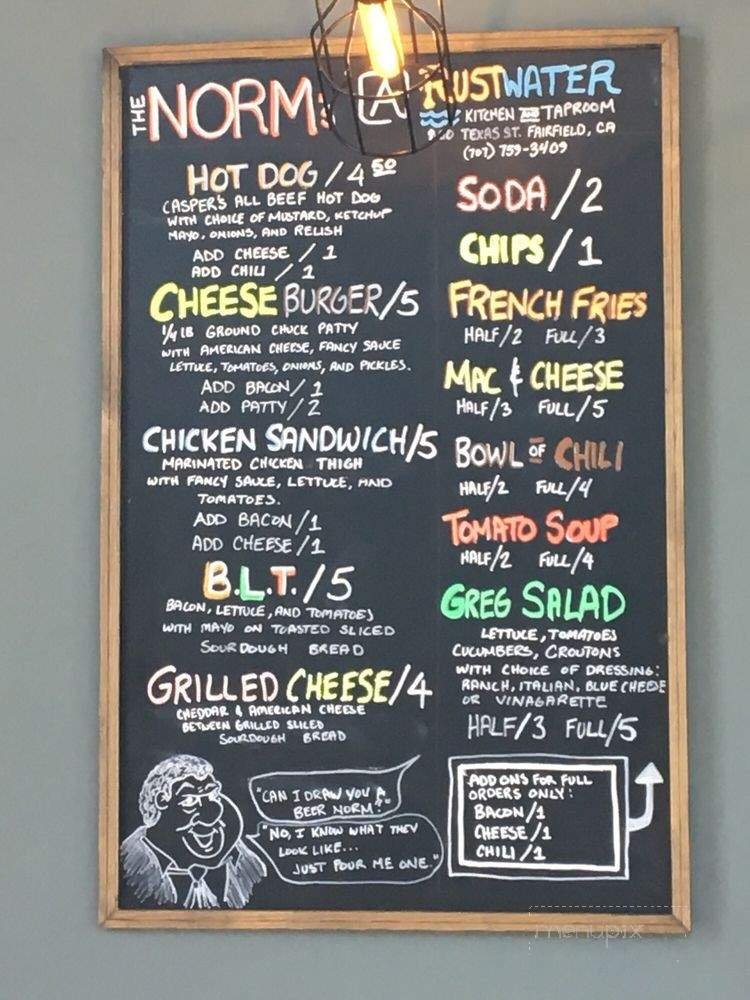 THE NORM
HOT DOG / 4 50
CASPER'S ALL BEEF HOT DOG
WITH CHOICE OF MUSTARD, KETCHUP
MAYO, ONIONS, AND RELISH
ADD CHEESE / 1
ADD CHILI / 1
CHEESE BURGER/5
1/4 LB GROUND CHUCK PATTY
WITH AMERICAN CHEESE, FANCY SAUCE
LETTUCE, TOMATOES, ONIONS, AND PICKLES.
ADD BACON / 1
ADD PATTY / 2
CHICKEN SANDWICH/5
MARINATED CHICKEN THIGH
WITH FANCY SAUCE, LETTUCE, AND
TOMATOES.
ADD BACON / 1
ADD CHEESE / 1
B.L.T. / 5
BACON, LETTUCE, AND TOMATOES
WITH MAYO ON TOASTED SLICED
SOURDOUGH BREAD
GRILLED CHEESE/4
CHEDDAR & AMERICAN CHEESE
BETWEEN GRILLED SLICED
SOURDOUGH BREAD
"CAN I DRAW YOU A
BEER NORM?"
"NO, I KNOW WHAT THEY
LOOK LIKE...
JUST POUR ME ONE."
RUSTWATER
KITCHEN AND TAPROOM
TEXAS ST. FAIRFIELD, CA
(707) 759-3409
SODA / 2
CHIPS / 1
FRENCH FRIES
HALF/2 FULL/3
MAC & CHEESE
HALF/3 FULL/5
BOWL OF CHILI
HALF/2 FULL/4
TOMATO SOUP
HALF/2 FULL/4
GREG SALAD
LETTUCE, TOMATOES
CUCUMBERS, CROUTONS
WITH CHOICE OF DRESSING:
RANCH, ITALIAN, BLUE CHEESE
OR VINAGARETTE
HALF/3 FULL/5
ADD ONS FOR FULL
ORDERS ONLY:
BACON/1
CHEESE/1
CHILI/1
menupix